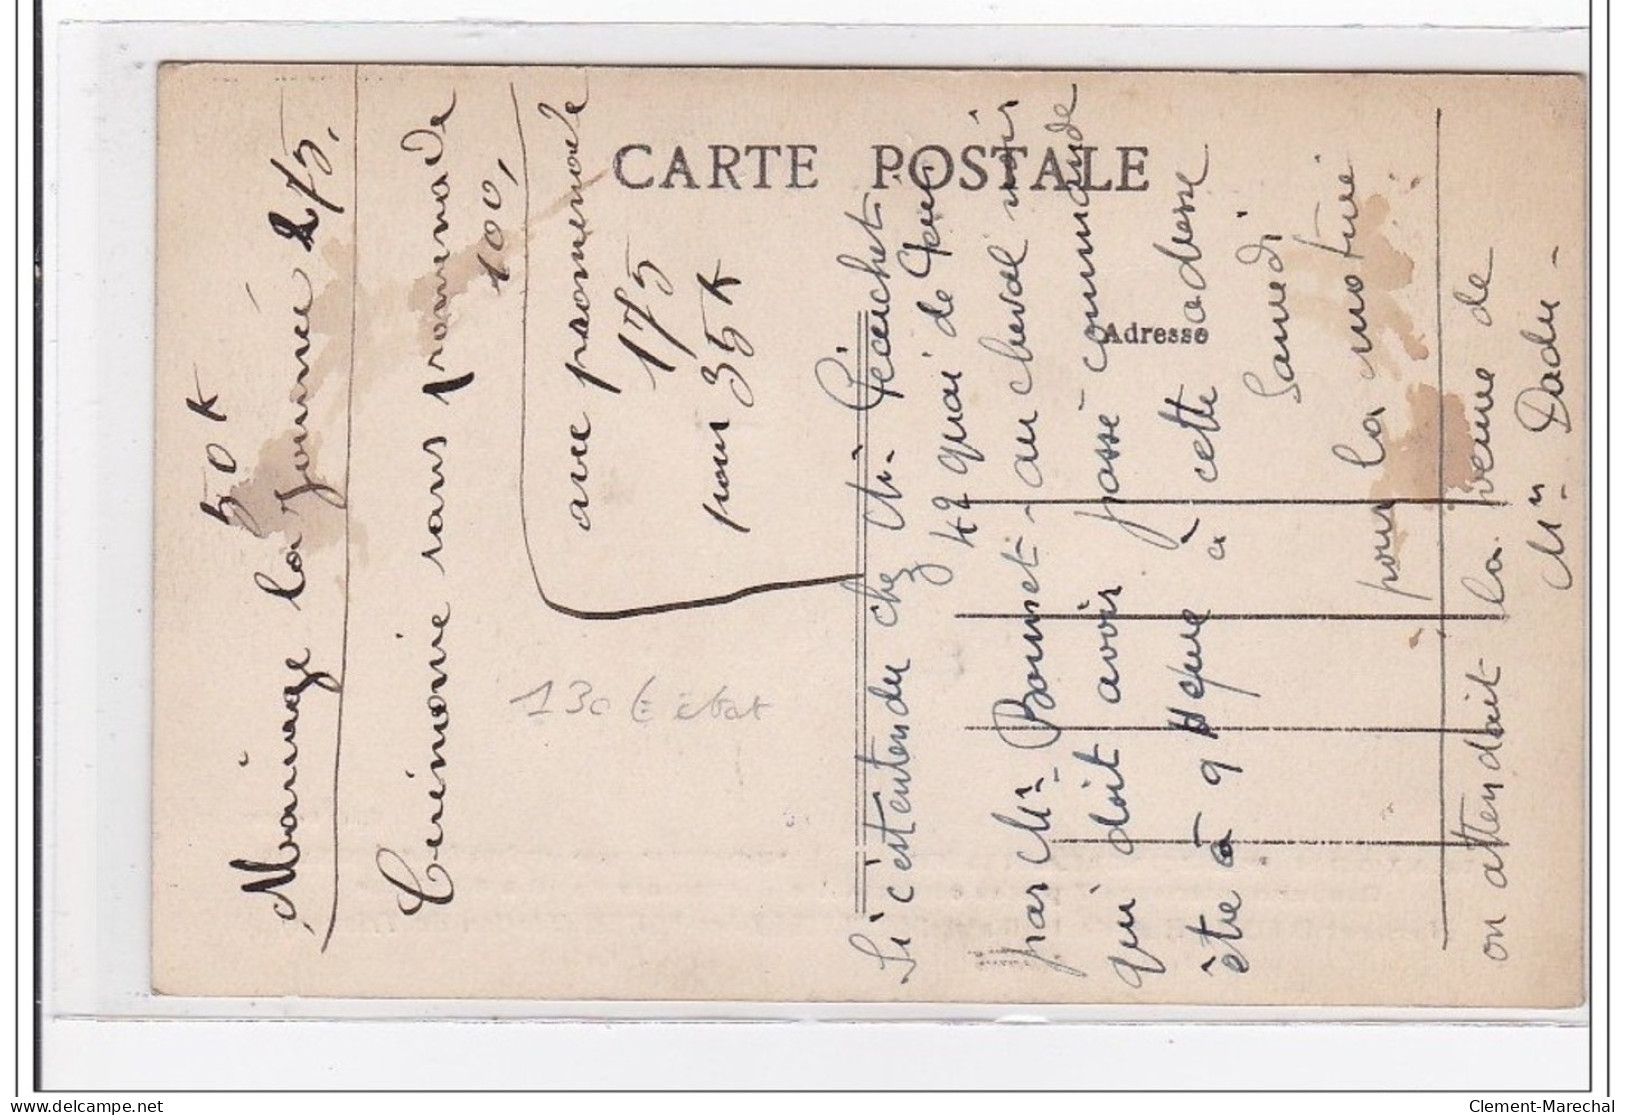 CARTE POSTALE
Adresse
50 K
Mariage la journée 275,
Cérémonie sans promenade
100,
avec promenade
175
pour 35 K
130 € état
Si c'est entendu chez Mr.
49 quai de
par Mr. Bonnet - au cheval noir
qui doit avoir passé commande
être à 9 Heure à cette adresse
Samedi
pour la
on attendait la venue de
Mr. Dadu -
Clement-Marechal